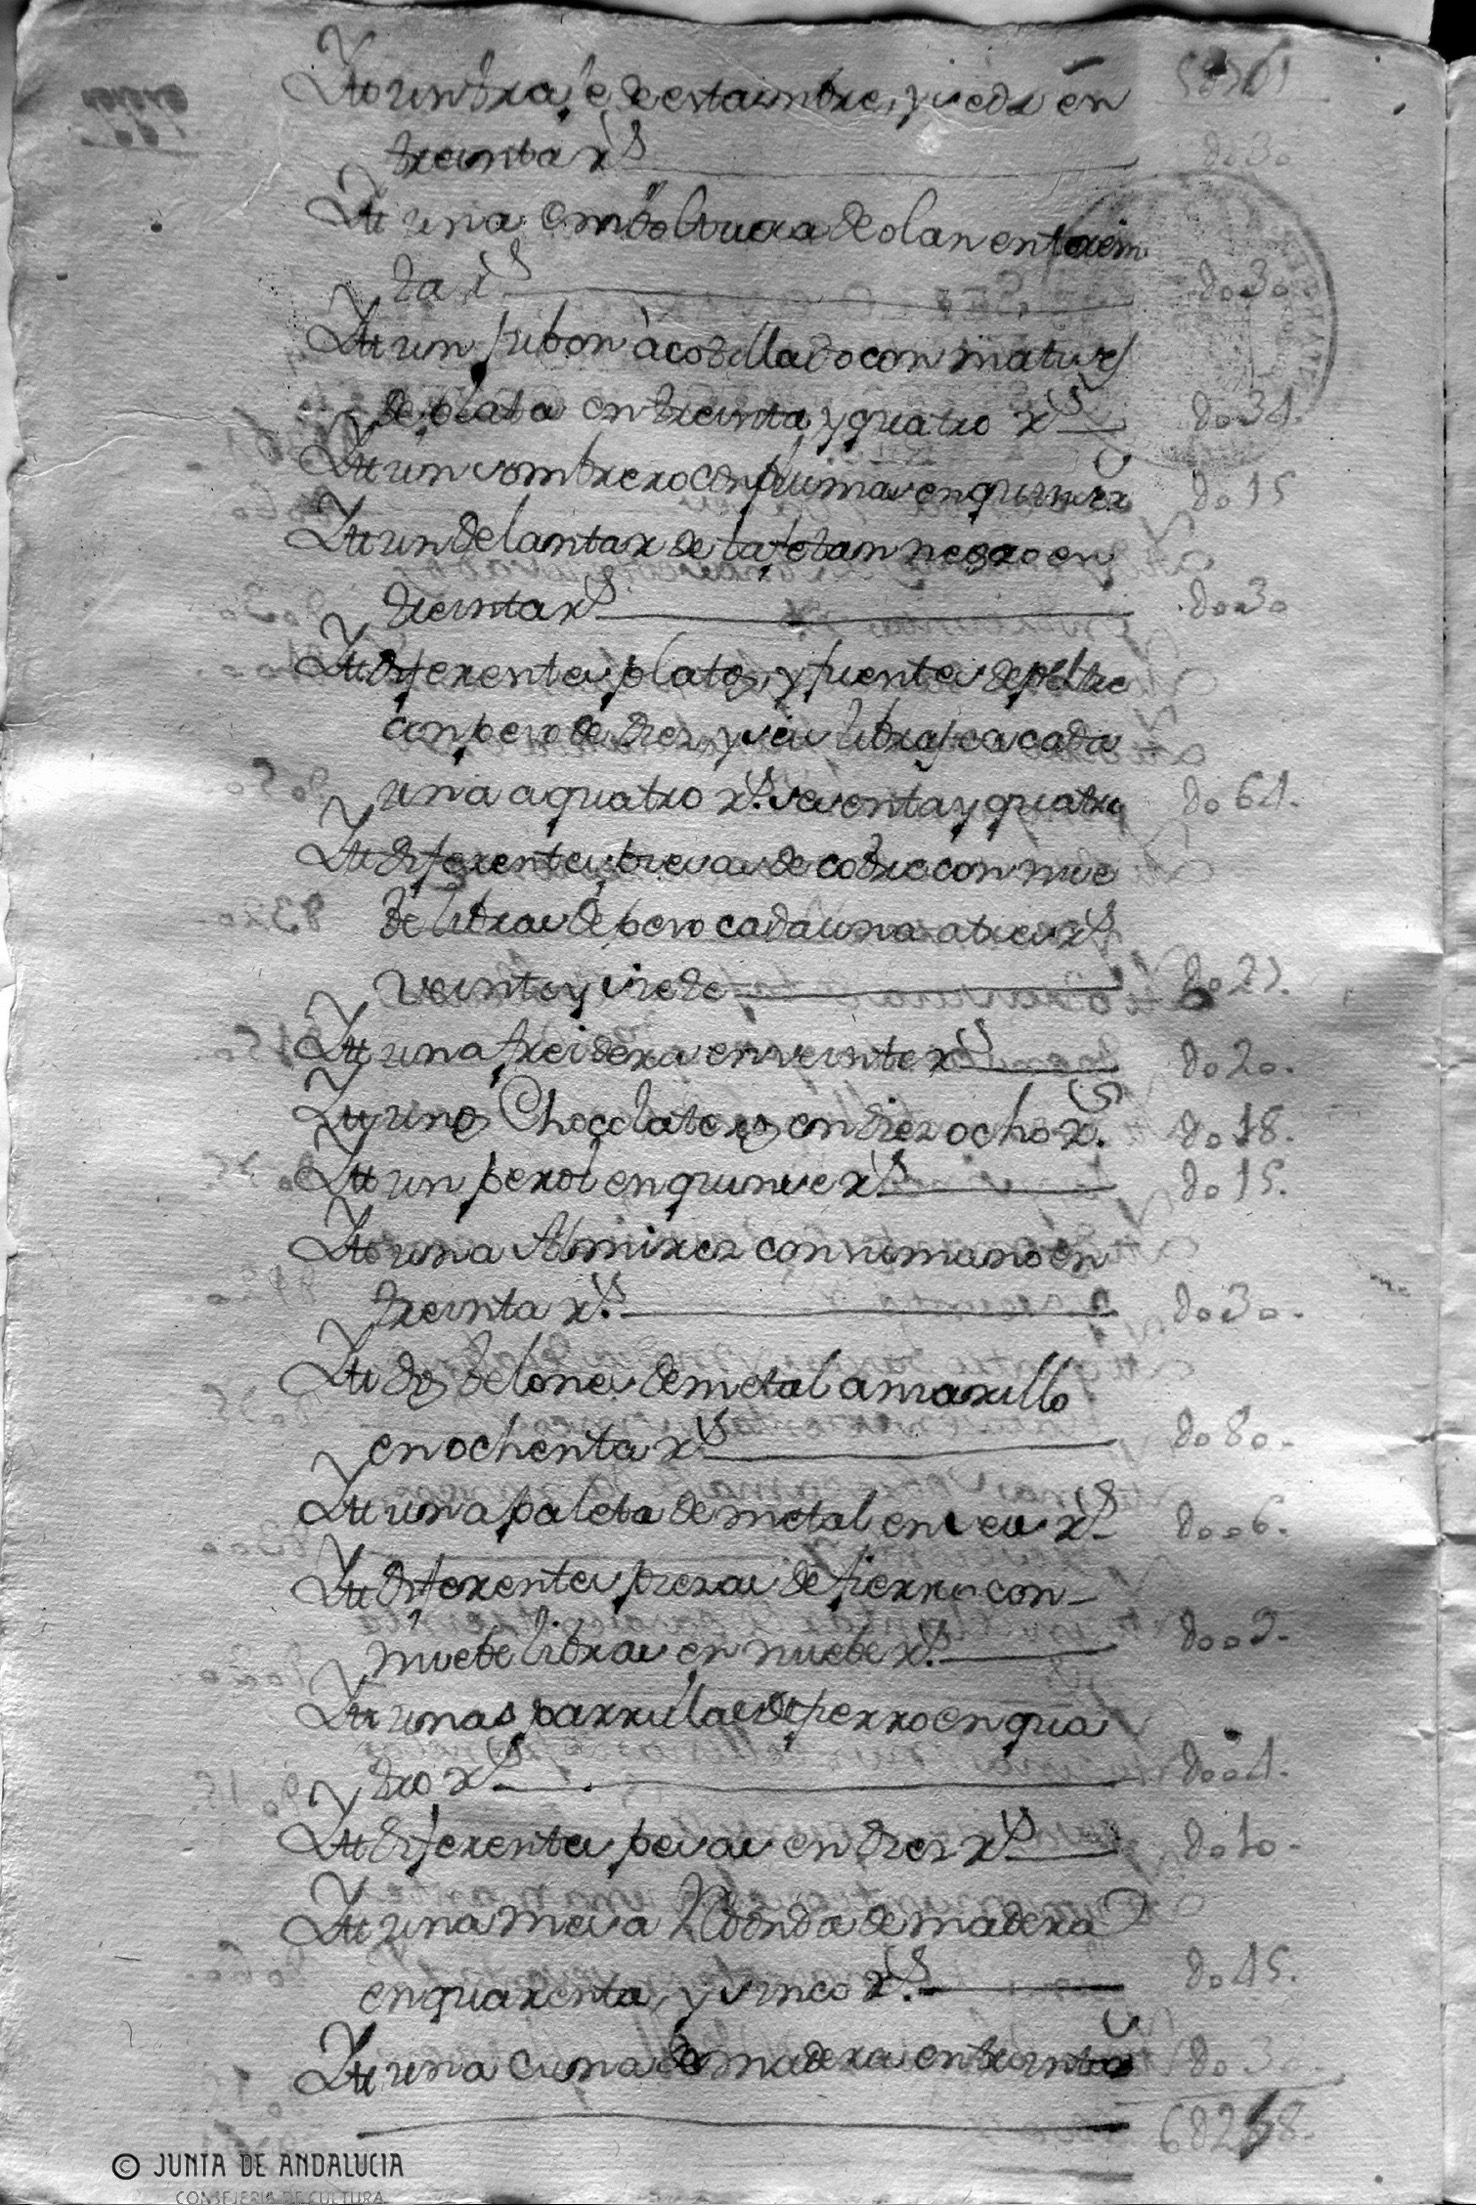 Ytt un traje de estambre, y seda en 5d761
treinta rs do30
Ytt una emboltura de olan en trein
ta rs do30
Ytt un jubon àcotillado con matises
de plata en treinta y quatro rs do34.
Ytt un sombrero con plumas en quinse rs do15
Ytt un delantar de tafetan negro en
treinta rs do30
Ytt diferentes platos, y fuentes de peltre
con peso de diez y seis libras ca cada
una a quatro rs. sesenta y quatro do64.
Ytt diferentes piesas de cobre con nue
be libras de peso cada una a tres rs
veinte y siete do27.
Ytt una freidera en veinte rs do20.
Ytt unos Chocolateros en diez ocho rs. do18.
Ytt un perol en quinse rs do15.
Ytt una Almirez con su mano en
treinta rs. do30.
Ytt dos belones de metal amarillo
en ochenta rs do80.
Ytt una paleta de metal en seis rs doo6.
Ytt diferentes piezas de fierro con
nuebe libras en nuebe rs. doo9.
Ytt unas parrillas de fierro en qua
tro rs doo4.
Ytt diferentes pesas en diez rs do10.
Ytt una mesa Redonda de madera
en quarenta, y sinco rs. do45.
Ytt una Cuna de madera en treinta rs do30.
6d258.
© JUNTA DE ANDALUCIA
CONSEJERIA DE CULTURA